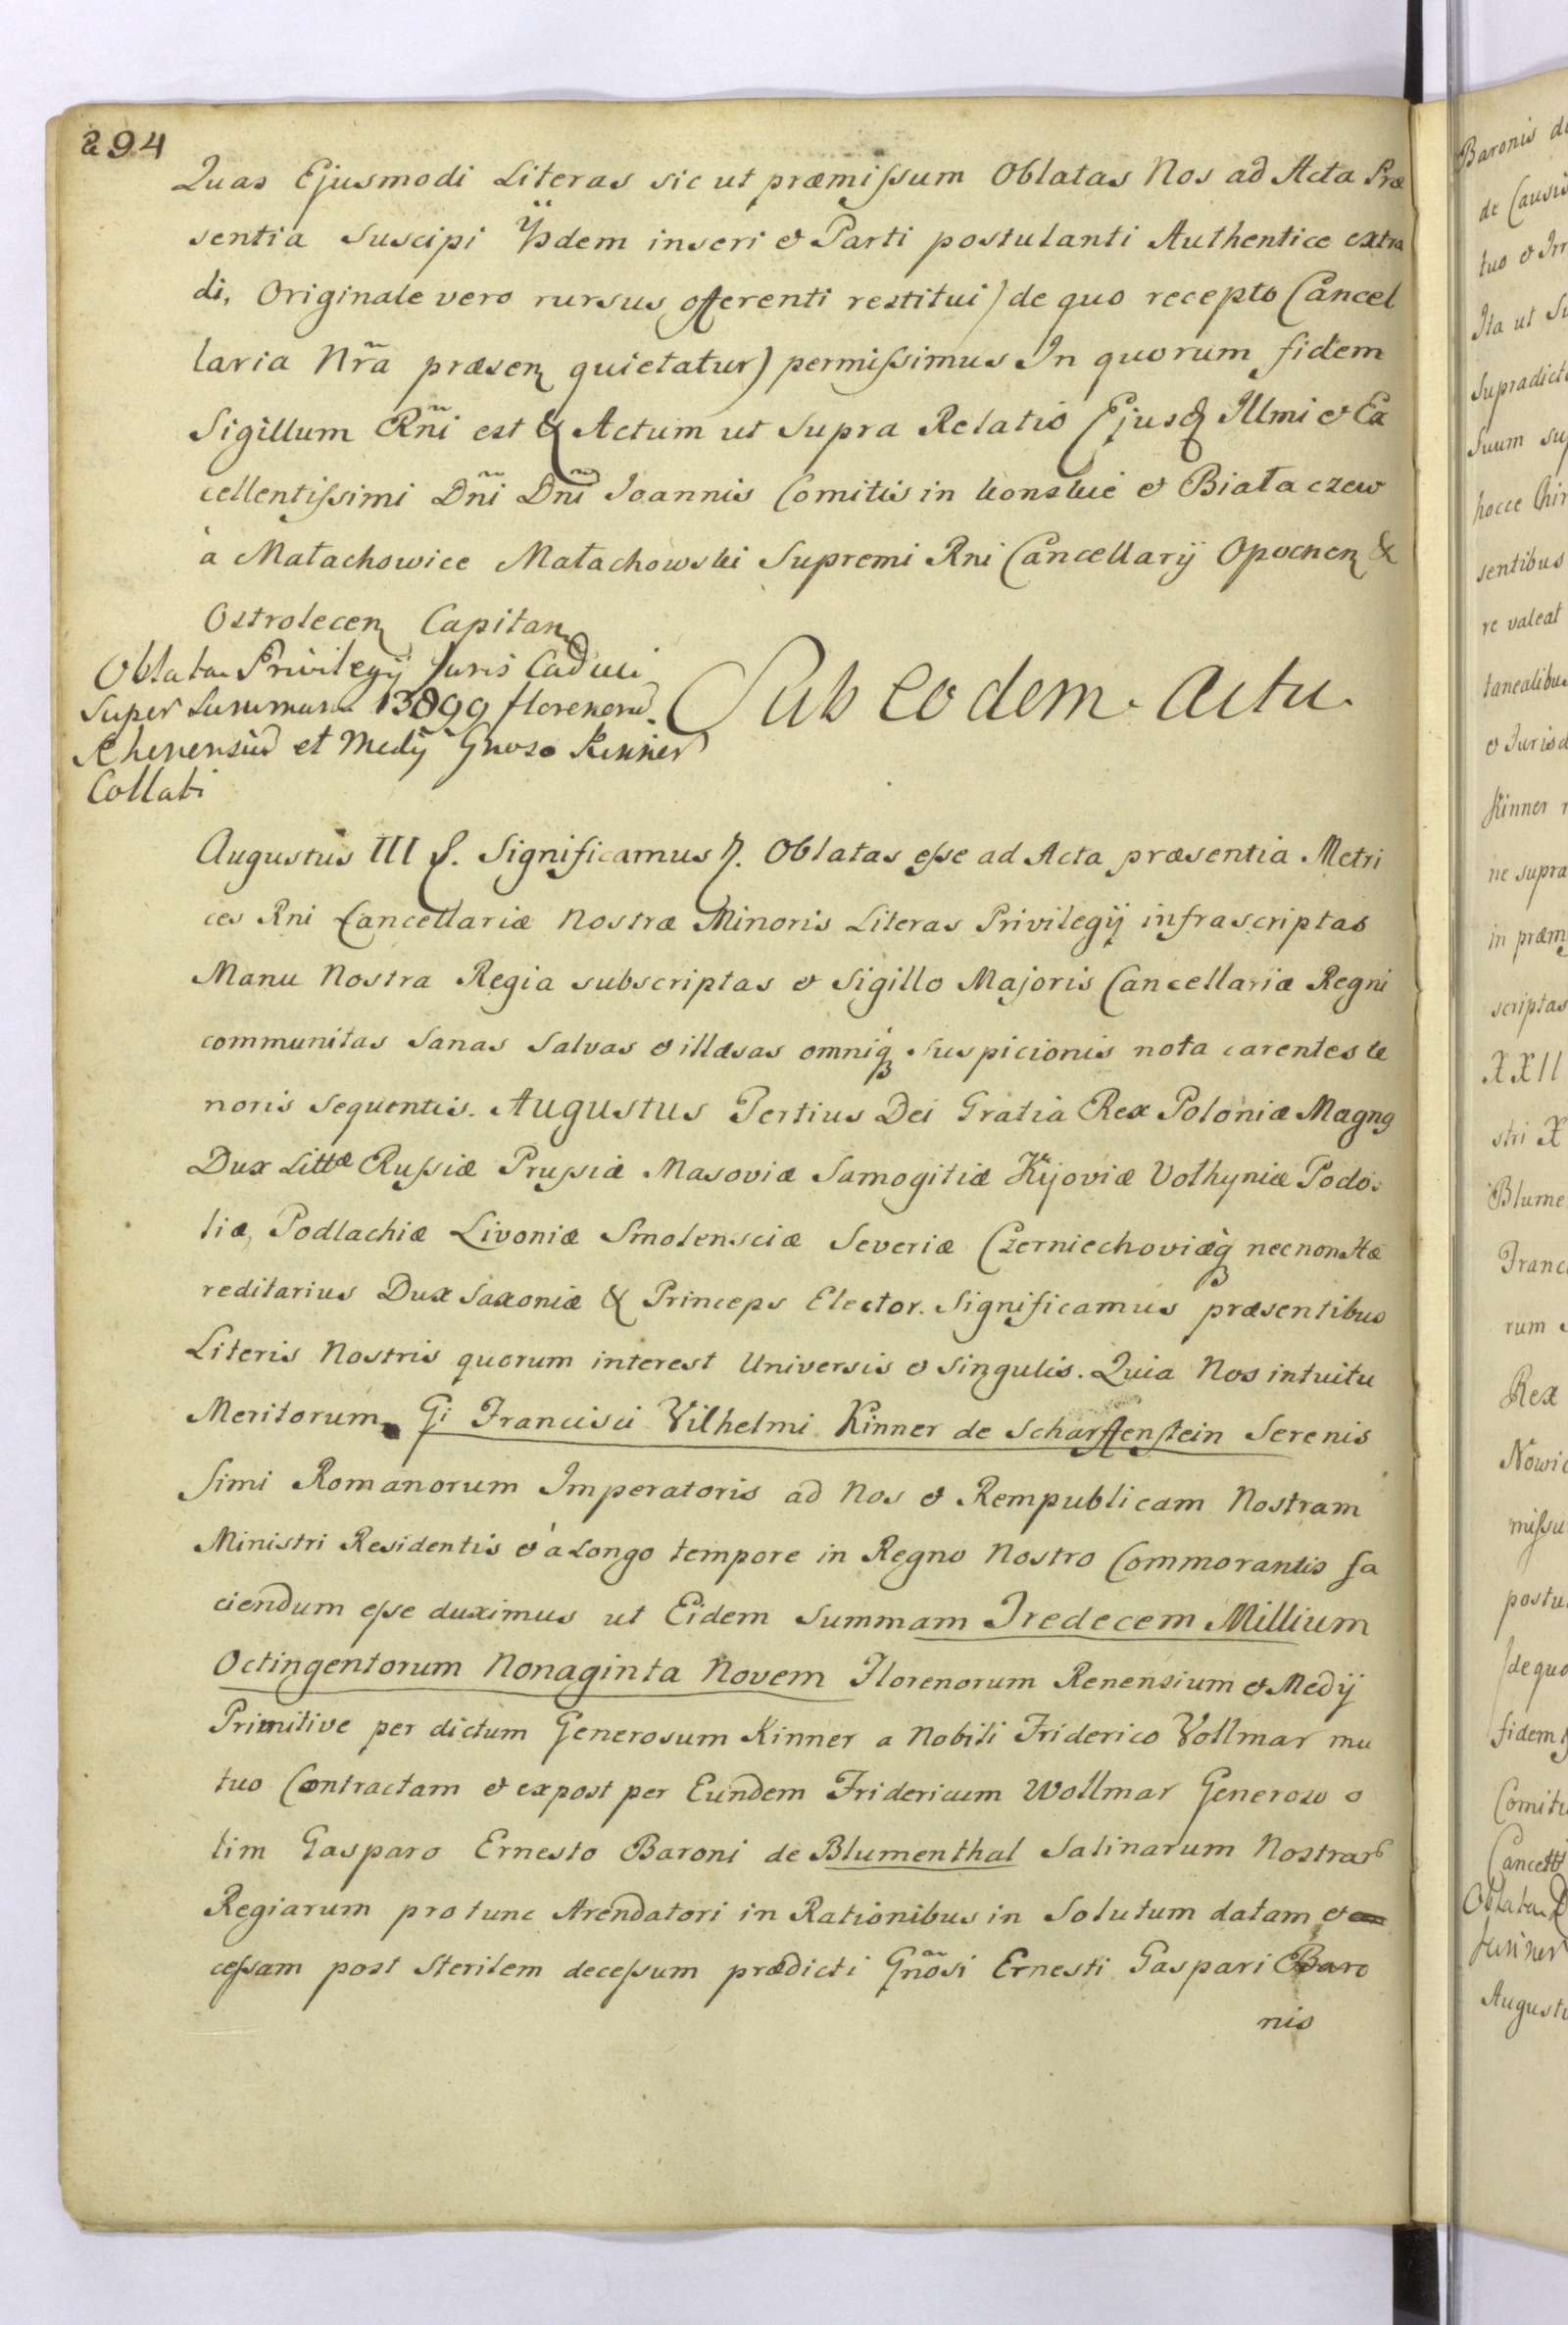 294
Quas Ejusmodi Literas sic ut præmissum Oblatas Nos ad Acta Præ
sentia Suscipi Ÿsdem inseri & Parti postulanti Authentice extra
di, Originale vero rursus offerenti restitui) de quo recepto Cancel
laria Nr̃a præsen quietatur) permissimus In quorum fidem
Sigillum Rñi est & Actum ut Supra Relatio Ejusd Illmi & Ex
cellentissimi Dñi Dñi Joannis Comitis in Konskie & Białaczew
à Małachowice Małachowski Supremi Rni Cancellarij Opocnen &
Ostrolecen Capitan
Oblata Privilegij Juris Caduci
Super Summam 13899 florenoru
Rhenensiu et Medij Gnoso Kinner
Collati
Sub eodem. Actu.
Augustus III S. Significamus &. Oblatas esse ad Acta præsentia Metri
ces Rni Cancellariæ Nostræ Minoris Literas Privilegij infrascriptas
Manu Nostra Regia subscriptas & Sigillo Majoris Cancellariæ Regni
communitas Sanas Salvas & illæsas omniq Suspicionis nota carentes te
noris Sequentis. Augustus Tertius Dei Gratia Rex Poloniæ Magng
Dux Littæ Russiæ Prussiæ Masoviæ Samogitiæ Kijoviæ Volhyniæ Podo
liæ, Podlachiæ Livoniæ Smolensciæ Severiæ Czerniechoviæq necnon Hæ
reditarius Dux Saxoniæ & Princeps Elector. Significamus præsentibus
Literis Nostris quorum interest Universis & Singulis. Quia Nos intuitu
Meritorum Gi Francisci Vilhelmi Kinner de Scharffenstein Serenis
Simi Romanorum Imperatoris ad Nos & Rempublicam Nostram
Ministri Residentis & à Longo tempore in Regno Nostro Commorantis fa
ciendum esse duximus ut Eidem Summam Tredecem Millium
Octingentorum Nonaginta Novem Florenorum Renensium & Medij
Primitive per dictum Generosum Kinner a Nobili Friderico Vollmar mu
tuo Contractam & expost per Eundem Fridericum Wollmar Generoso o
lim Gasparo Ernesto Baroni de Blumenthal Salinarum Nostrar
Regiarum protunc Arendatori in Rationibus in Solutum datam &
cessam post Sterilem decessum prædicti Gnõsi Ernesti Gaspari Baro
nis
Baronis de
de Causis
tuo & Irr
Ita ut Su
Supradict
Suum sup
hocce Chir
sentibus
re valeat
tanealibus
& Jurisd
Kinner
ne supra
in præm
scriptas
XXII
stri X
Blume
Franc
rum
Rex
Nowic
missu
postu
(de quo
fidem
Comitis
Cancell
Oblata
Kinner
Augustu